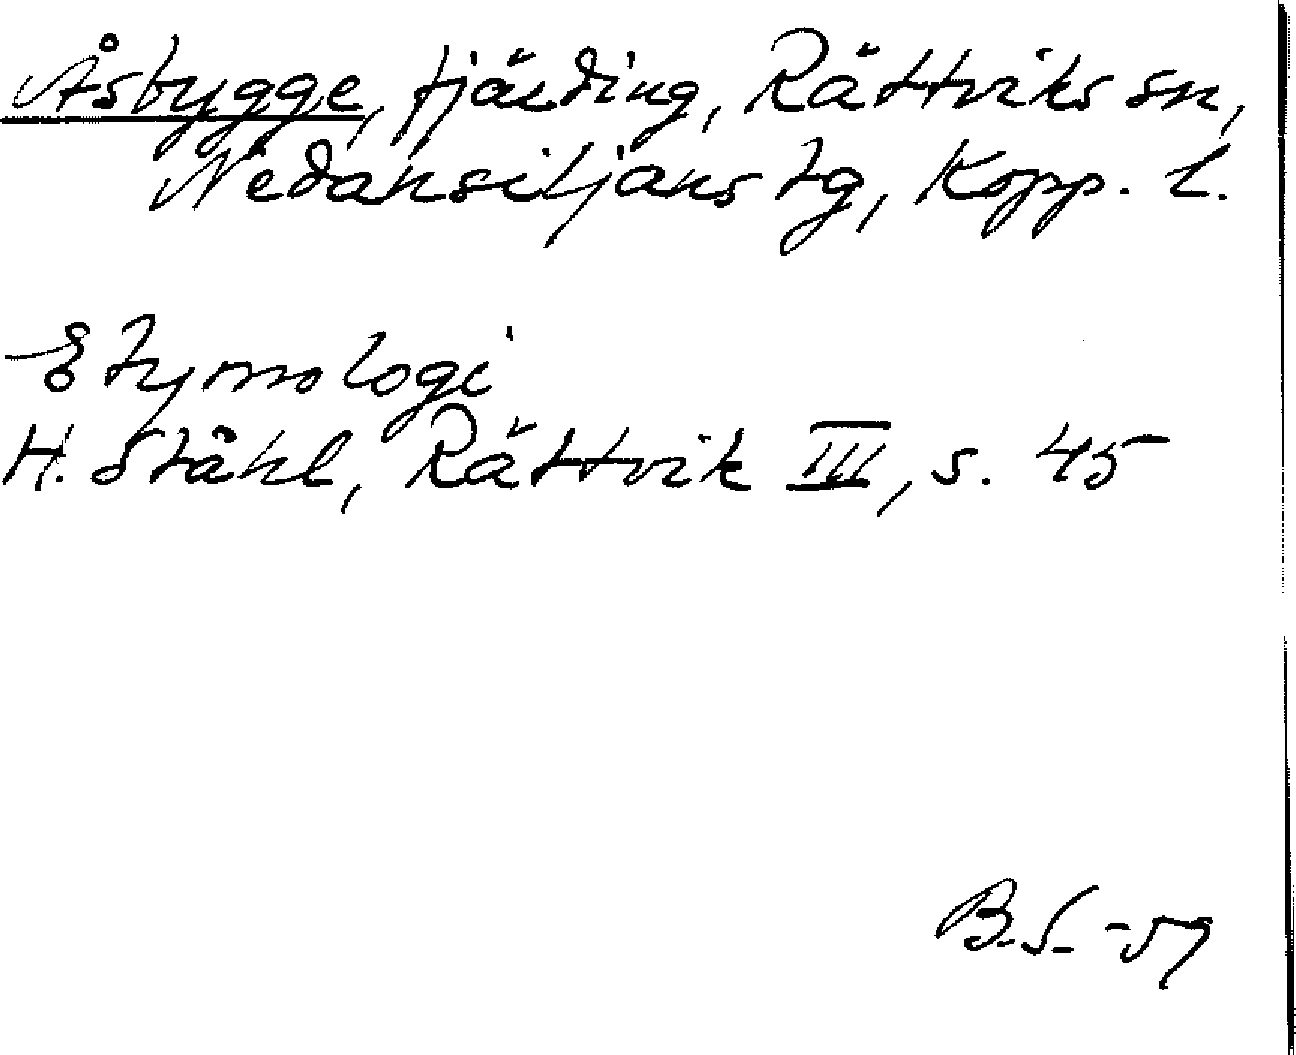 Åsbygge, fjärding, Rättviks sn,
Nedansiljans tg, Kopp. l.
Etymologi
H. Ståhl, Rättvik III, s. 45
B.S. -59